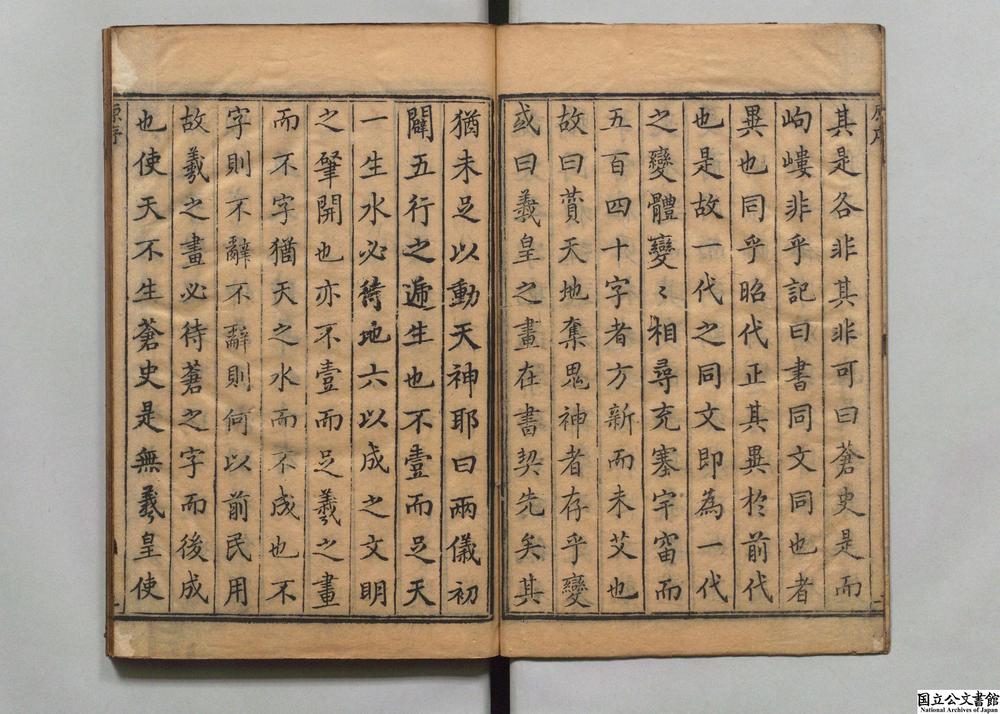 其是各非其非可曰蒼史是而
岣嶁非乎記曰書同文同也者
異也同乎昭代正其異於前代
也是故一代之同文即為一代
之變體變〻相尋充塞宇宙而
五百四十字者方新而未艾也
故曰蕡天地奪鬼神者存乎變
或曰羲皇之畫在書契先矣其
猶未足以動天神耶曰兩儀初
闢五行之遞生也不壹而足天
一生水必待地六以成之文明
之肇開也亦不壹而足羲之畫
而不字猶天之水而不成也不
字則不辭不辭則何以前民用
故羲之畫必待蒼之字而後成
也使天不生蒼史是無羲皇使
原序
原序
国立公文書館
National Archives of Japan